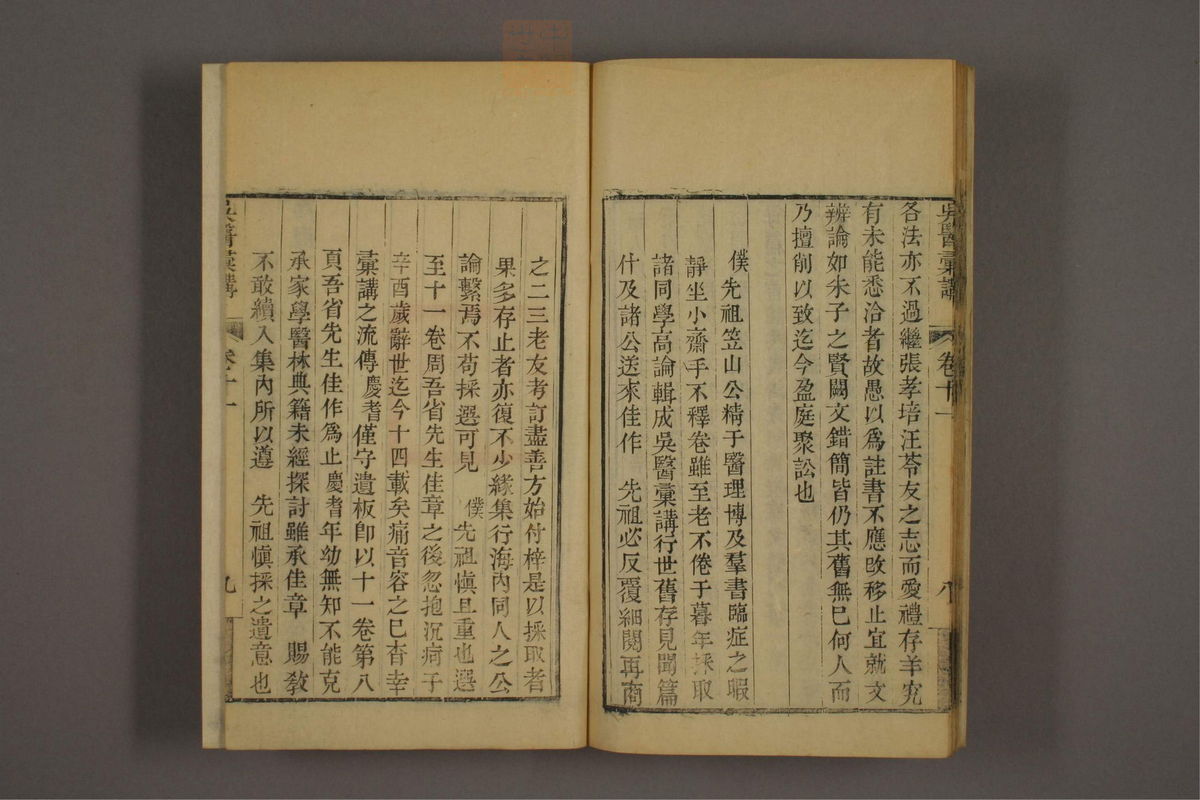 吳醫彙講
卷十一
八
各法亦不過繼張孝培汪苓友之志而愛禮存羊究
有未能悉洽者故愚以爲註書不應改移止宜就文
辨論如朱子之賢闕文錯簡皆仍其舊無已何人而
乃擅削以致迄今盈庭聚訟也
僕先祖笠山公精于醫理博及羣書臨症之暇
靜坐小齋手不釋卷雖至老不倦于暮年採取
諸同學高論輯成吳醫彙講行世舊存見聞篇
什及諸公送來佳作 先祖必反覆細閱再商
之二三老友考訂盡善方始付梓是以採取者
果多存止者亦復不少緣集行海內同人之公
論繫焉不苟採選可見 僕先祖慎且重也選
至十一卷周吾省先生佳章之後忽抱沉疴于
辛酉歲辭世迄今十四載矣痛音容之已杳幸
彙講之流傳慶耆僅守遺板卽以十一卷第八
頁吾省先生佳作爲止慶耆年幼無知不能克
承家學醫林典籍未經探討雖承佳章 賜教
不敢續入集內所以遵 先祖慎採之遺意也
吳醫彙講
卷十一
九